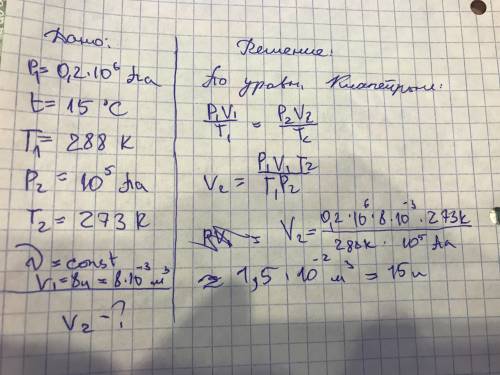 Дано:
P₁ = 0,2·10⁶ Па
t = 15 °C
T₁ = 288 K
P₂ = 10⁵ Па
T₂ = 273 K
ν = const
V₁ = 8л = 8·10⁻³ м³
V₂ - ?
Решение:
По уравн. Клапейрона:
P₁V₁/T₁ = P₂V₂/T₂
V₂ = P₁V₁T₂/T₁P₂
V₂ = 0,2·10⁶·8·10⁻³·273к/288к · 10⁵ Па
≈ 1,5·10⁻² м³ = 15л